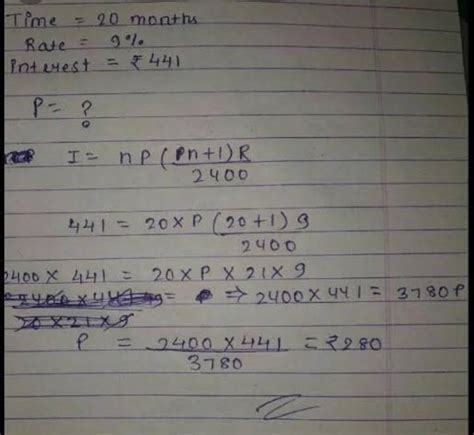 Time = 20 months
Rate = 9%
interest = ₹441
P = ?
I = nP(n+1)R
2400
441 = 20×P(20+1)9
2400
2400× 441 = 20×P×21×9
2400×44 = ⇒ 2400×441 = 3780P
20×21×9
P = 2400×441 = ₹280
3780